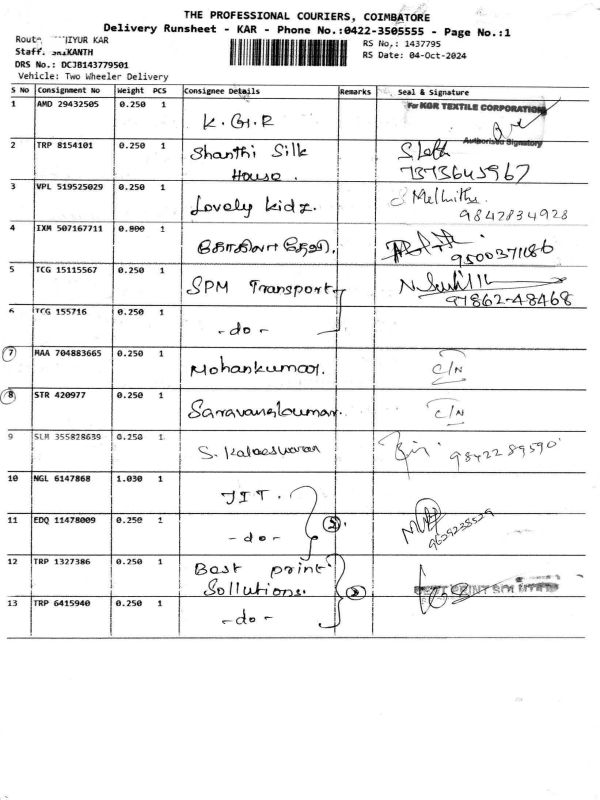 THE PROFESSIONAL COURIERS, COIMBATORE
Delivery Runsheet - KAR - Phone No.:0422-3505555 - Page No.:1
Route IYUR KAR
RS No,: 1437795
Staff. SRIKANTH
RS Date: 04-Oct-2024
DRS No.: DCJB143779501
Vehicle: Two Wheeler Delivery
S No Consignment No Weight PCS Consignee Details Remarks Seal & Signature
1 AMD 29432505 0.250 1 K.G.R For KGR TEXTILE CORPORATION
Authorised Signatory
2 TRP 8154101 0.250 1 Shanthi Silk
House. 7373645967
3 VPL 519525029 0.250 1 Lovely kidz.
9847834928
4 IXM 507167711 0.800 1 கோகிலா தேவி.
9500371186
5 TCG 15115567 0.250 1 SPM Transport
97862-48468
6 TCG 155716 0.250 1 - do -
7 MAA 704883665 0.250 1 Mohankumar. C/N
8 STR 420977 0.250 1 Saravanakumar. C/N
9 SLM 355828639 0.250 1 S. Kalaeswaran 9842289590
10 NGL 6147868 1.030 1 JIT.
11 EDQ 11478009 0.250 1 - do -
12 TRP 1327386 0.250 1 Best print
Sollutions. BEST PRINT SOLUTIONS
13 TRP 6415940 0.250 1 - do -